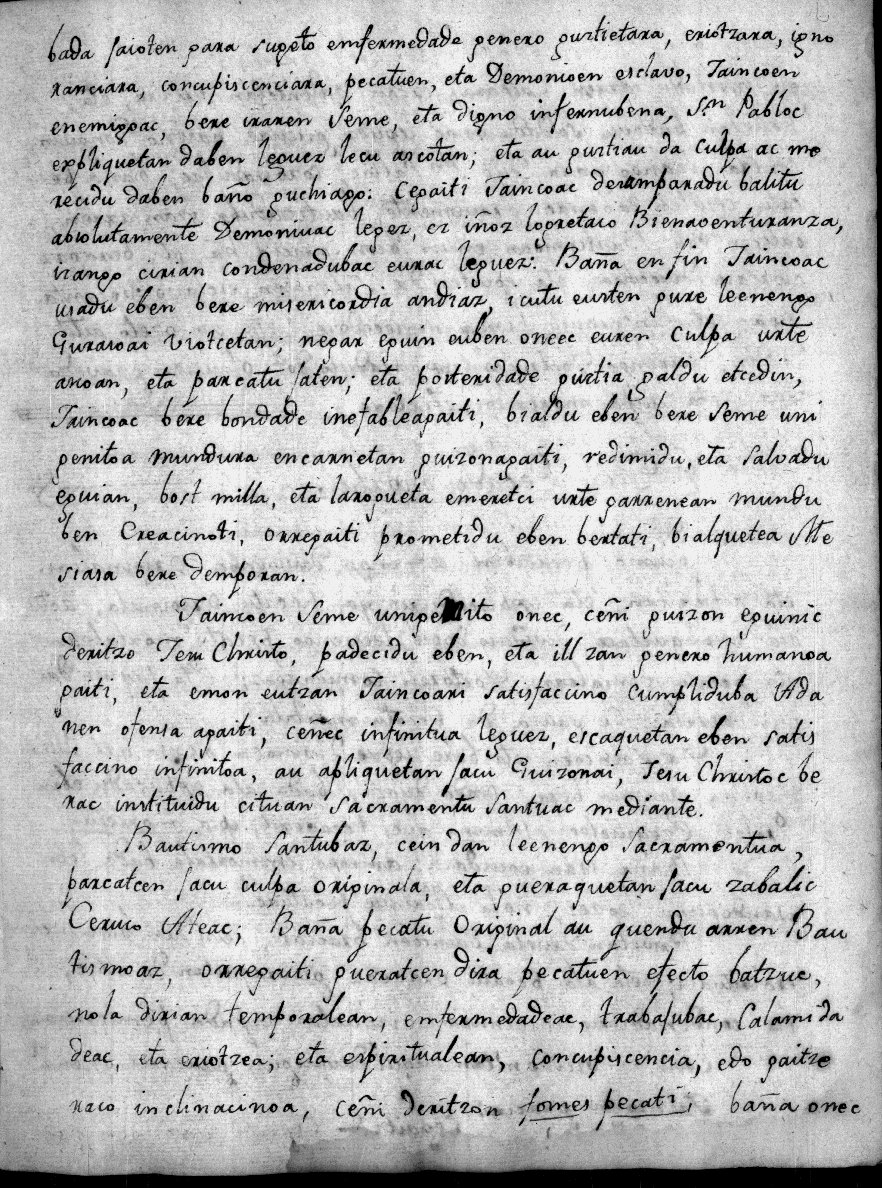 bada jaioten para sugeto emfermedade genero guztietara, eriotzara, igno
ranciara, concupiscenciara, pecatuen, eta Demonioen esclavo, Jaincoen
enemigoac, bere iraren seme, eta digno infernubena, Sn Pabloc
expliquetan daben leguez lecu ascotan; eta au guztiau da culpa ac me
recidu daben baño guchiago. Cegaiti Jaincoac desamparadu balitu
absolutamente Demoniuac legez, ez iñoz logretaco Bienaventuranza,
izango cirian condenadubac eurac leguez. Baña en fin Jaincoac
usadu eben bere misericordia andiaz, icutu eusten gure leenengo
Gurasoai viotcetan; negar eguin euben oneec euren culpa urte
ascoan, eta parcatu jaten; eta posteridade guztia galdu etcedin,
Jaincoac bere bondade inefableagaiti, bialdu eben bere seme uni
genitoa mundura encarnetan guizonagaiti, redimidu, eta salvadu
eguian, bost milla, eta larogueta emeretci urte garrenean mundu
ben Creacinoti, orregaiti prometidu eben bertati, bialquetea Me
siasa bere demporan.
Jaincoen seme unigenito onec, ceñi guizon eguinic
deritzo Jesu Christo, padecidu eben, eta ill zan genero humanoa
gaiti, eta emon eutzan Jaincoari satisfaccino cumpliduba Ada
nen ofensa agaiti, ceñec infinitua leguez, escaquetan eben satis
faccino infinitoa, au apliquetan jacu Guizonai, Jesu Christoc be
rac instituidu cituan sacramentu santuac mediante.
Bautismo santubaz, cein dan leenengo sacramentua,
parcatcen jacu culpa originala, eta gueraquetan jacu zabalic
Ceruco Ateac; Baña pecatu original au quendu arren Bau
tismoaz, orregaiti gueratcen dira pecatuen efecto batzuc,
nola dirian temporalean, emfermedadeac, trabajubac, Calamida
deac, eta eriotzea; eta espiritualean, concupiscencia, edo gaitze
raco inclinacinoa, ceñi deritzon fomes pecati, baña onec